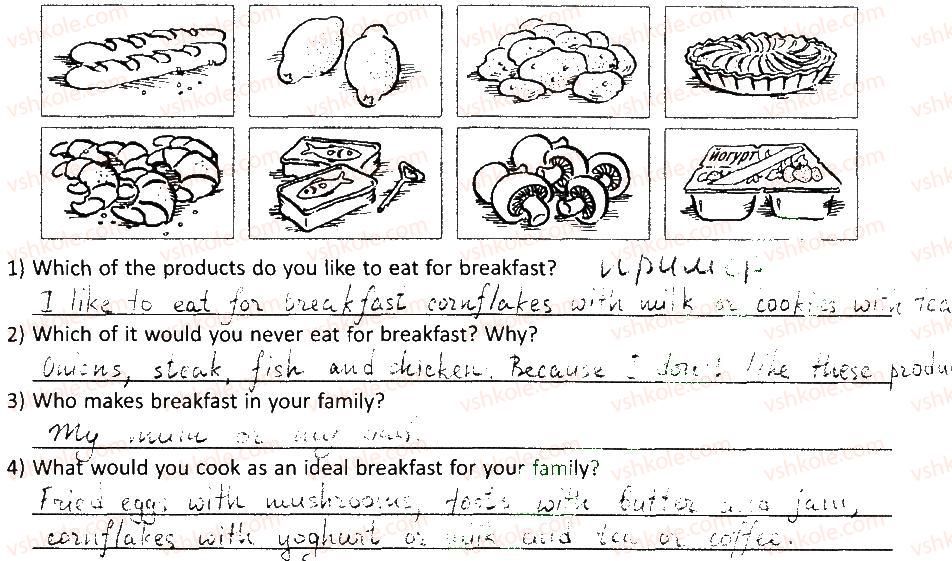 йогурт
1) Which of the products do you like to eat for breakfast? пример
I like to eat for breakfast cornflakes with milk or cookies with tea
2) Which of it would you never eat for breakfast? Why?
Onions, steak, fish and chicken. Because I don't like these produ
3) Who makes breakfast in your family?
My mum or my
4) What would you cook as an ideal breakfast for your family?
Fried eggs with mushrooms, tosts with butter and jam,
cornflakes with yoghurt or milk and tea or coffee.